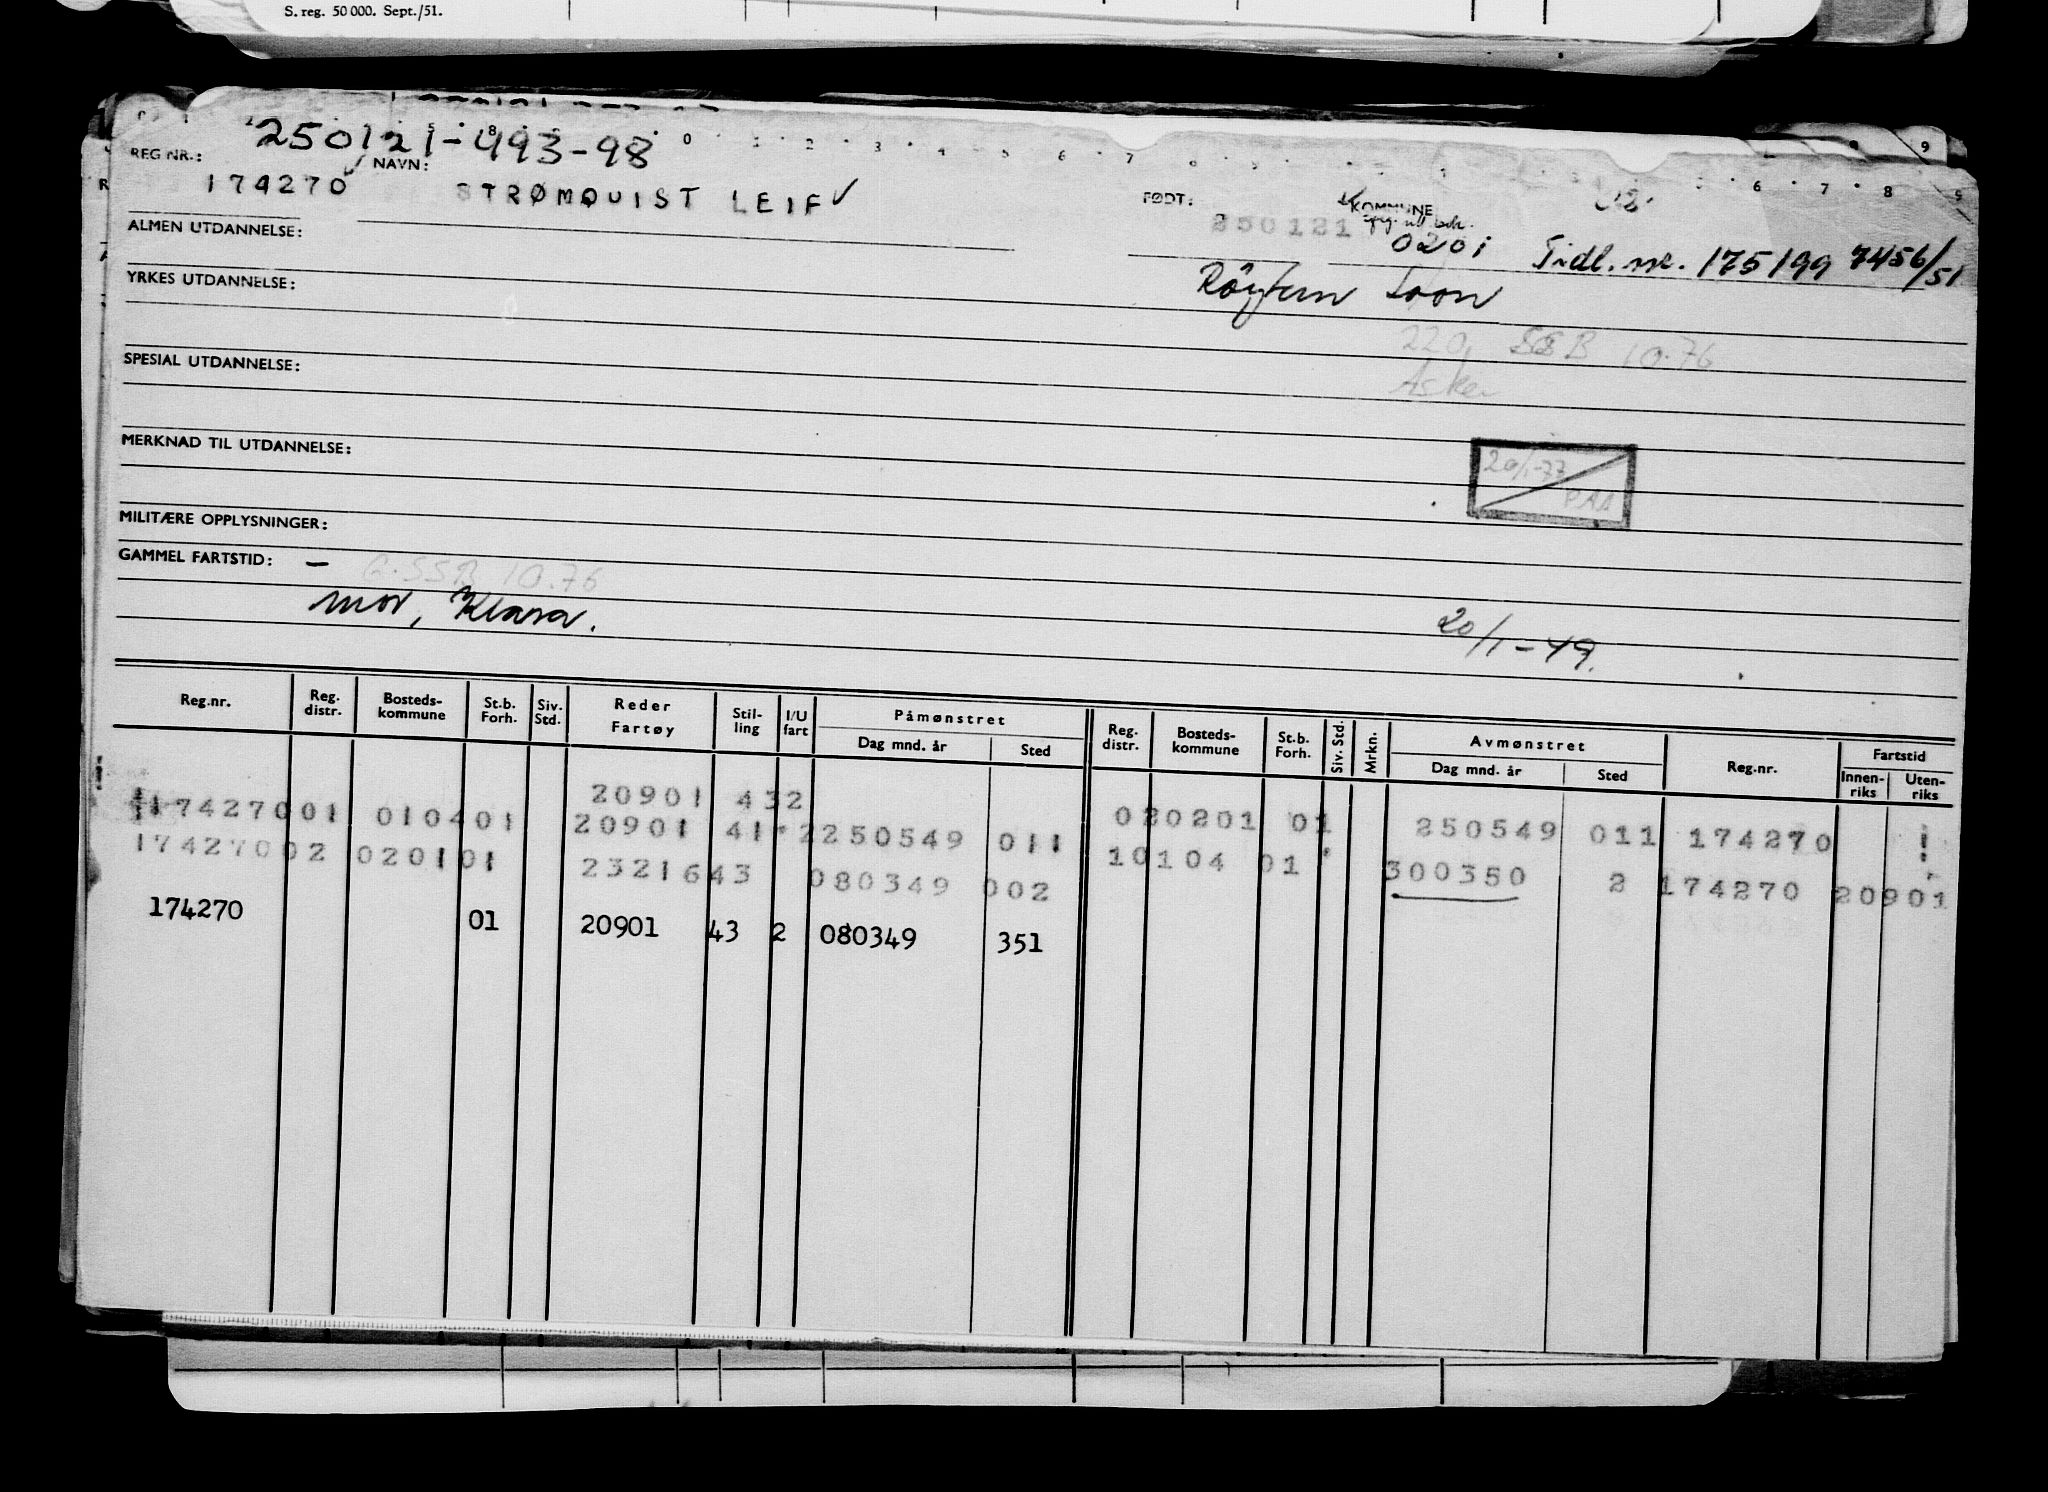 S. reg. 50 000. Sept./51.
250121-493-98
REG NR.: NAVN: FØDT: KOMMUNE
174270 STRØMQUIST LEIF 250121 0201 Tidl. nr. 175199 7456/51
ALMEN UTDANNELSE:
YRKES UTDANNELSE:
220, SSB 10.76
SPESIAL UTDANNELSE: Asker
MERKNAD TIL UTDANNELSE:
20/1-77
MILITÆRE OPPLYSNINGER:
GAMMEL FARTSTID: - SSB 10.76
mor, Klara. 20/1-49.
Reg.nr. Reg. distr. Bosteds-kommune St.b. Forh. Siv. Std. Reder Fartøy Stil-ling I/U fart Påmønstret Dag mnd. år Sted Reg. distr. Bosteds-kommune St.b. Forh. Siv. Std. Mrkn. Avmønstret Dag mnd. år Sted Reg.nr. Fartstid Innen-riks Uten-riks
20901 432
17427001 010401 20901 41 2250549 011 020201 01 250549 011 174270
17427002 020101 2321643 080349 002 10104 01 300350 2 174270 20901
174270 01 20901 43 2 080349 351